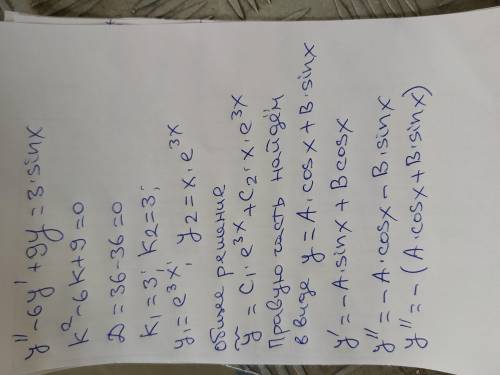 y'' - 6y' + 9y = 3·sinx
k² - 6k + 9 = 0
D = 36 - 36 = 0
k₁ = 3; k₂ = 3;
y₁ = e^3x; y₂ = x·e^3x
общее решение
ỹ = C₁·e^3x + C₂·x·e^3x
Правую часть найдём
в виде y = A·cosx + B·sinx
y' = -A·sinx + Bcosx
y'' = -A·cosx - B·sinx
y'' = -(A·cosx + B·sinx)